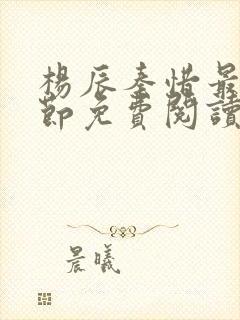 楊辰秦惜最
節免費閱讀
晨曦